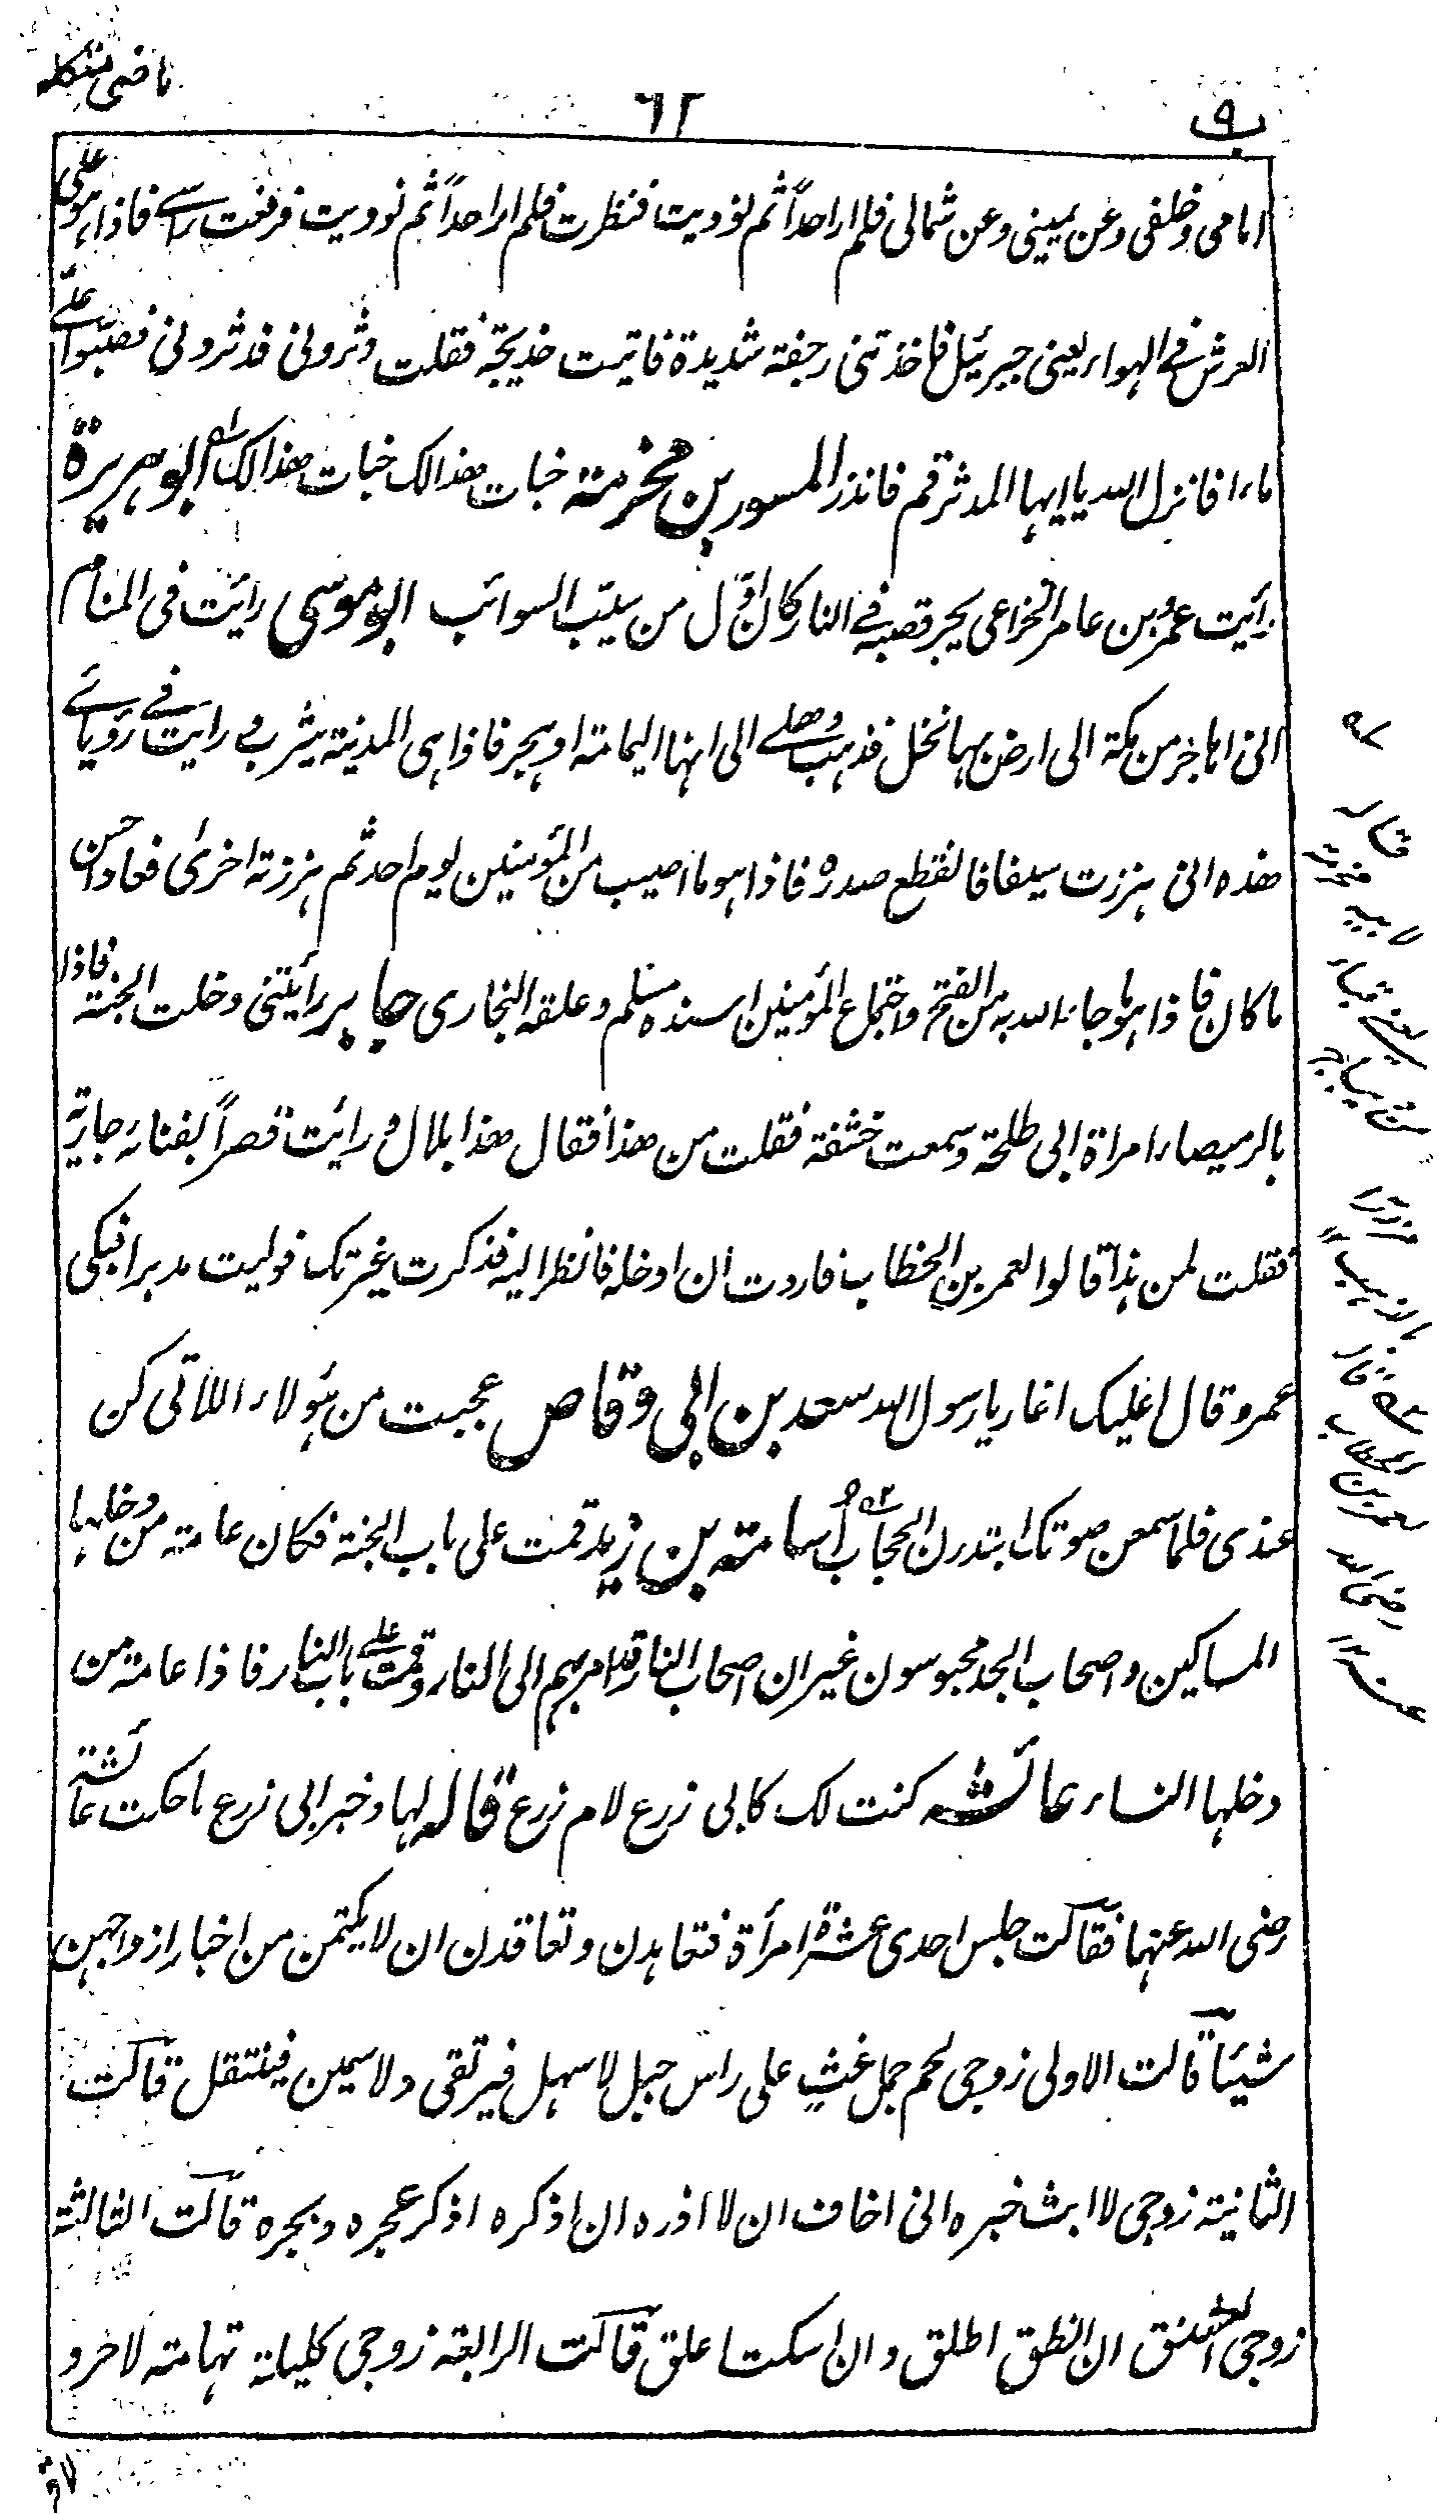 ماضی متکلم
٦٢
ب٩
امامی وخلفی وعن یمینی وعن شمالی فلم ار احداً ثم نودیت فنظرت فلم ار احداً ثم نودیت فرفعت راسی فاذا ہو علی
العرش فی الہواء یعنی جبرئیل فاخذتنی رجفة شدیدة فاتیت خدیجة فقلت دثرونی فدثرونی فصبوا علی
ماء افانزل اللہ یا ایہا المدثر قم فانذر المسور بن مخرمة خبات ھذا لک خبات ھذا لک ابو ہریرة
رأیت عمرو بن عامر الخزاعی یجر قصبہ فی النار کان اول من سیّب السوائب ابو موسی رأیت فی المنام
انی اہاجر من مکة الی ارض بہا نخل فذہب وھلی الی انہا الیمامة او ہجر فاذا ہی المدینة یثرب ورایت فی رؤیائی
ھذہ انی ہززت سیفا فانقطع صدرہ فاذا ہو ما اصیب من المؤمنین یوم احد ثم ہززتہ اخری فعاد احسن
ما کان فاذا ہو ما جاء اللہ بہ من الفتح واجتماع المؤمنین اسندہ مسلم وعلقہ البخاری جابر رأیتنی دخلت الجنة فاذا
بالرمیصاء امراة ابی طلحة وسمعت خشفة فقلت من ھذا فقال ھذا بلال ورایت قصراً بفنائہ جاریة
فقلت لمن ہذا قالوا لعمر بن الخطاب فاردت ان ادخلہ فانظر الیہ فذکرت غیرتک فولیت مدبرا فبکی
عمر وقال اعلیک اغار یا رسول اللہ سعد بن ابی وقاص عجبت من ہؤلاء اللاتی کن
عندی فلما سمعن صوتک ابتدرن الحجاب أسامة بن زید قمت علی باب الجنة فکان عامة من دخلہا
المساکین واصحاب الجد محبوسون غیر ان اصحاب النار قد امر بہم الی النار وقمت علی باب النار فاذا عامة من
دخلہا النساء عائشہ کنت لک کابی زرع لام زرع قالہ لہا وخبر ابی زرع ما حکت عائشة
رضی اللہ عنہا فقالت جلس احدی عشرة امرأة فتعاہدن وتعاقدن ان لا یکتمن من اخبار ازواجہن
شیئا قالت الاولی زوجی لحم جمل غث علی راس جبل لا سہل فیرتقی ولا سمین فینتقل قالت
الثانیة زوجی لا ابث خبرہ انی اخاف ان لا اذرہ ان اذکرہ اذکر عجرہ وبجرہ قالت الثالثة
زوجی العشنق ان انطق اطلق وان اسکت اعلق قالت الرابعة زوجی کلیلة تہامة لا حر و
قالہ
لابیہ
بالذہب
قالہ
لعمر بن الخطاب
رضی اللہ
عنہ
لا قر